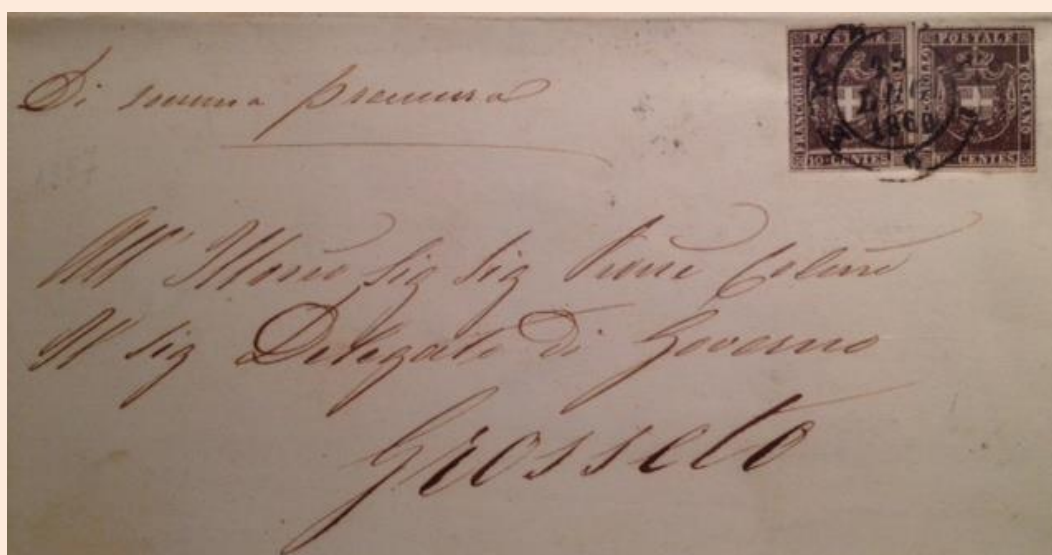 Di somma premura
FRANCOBOLLO POSTALE
10 CENTES
POSTALE TOSCANO
CENTES
LUG
1860
All' Illmo Sig Sig Prone Colmo
Il Sig Delegato di Governo
Grosseto